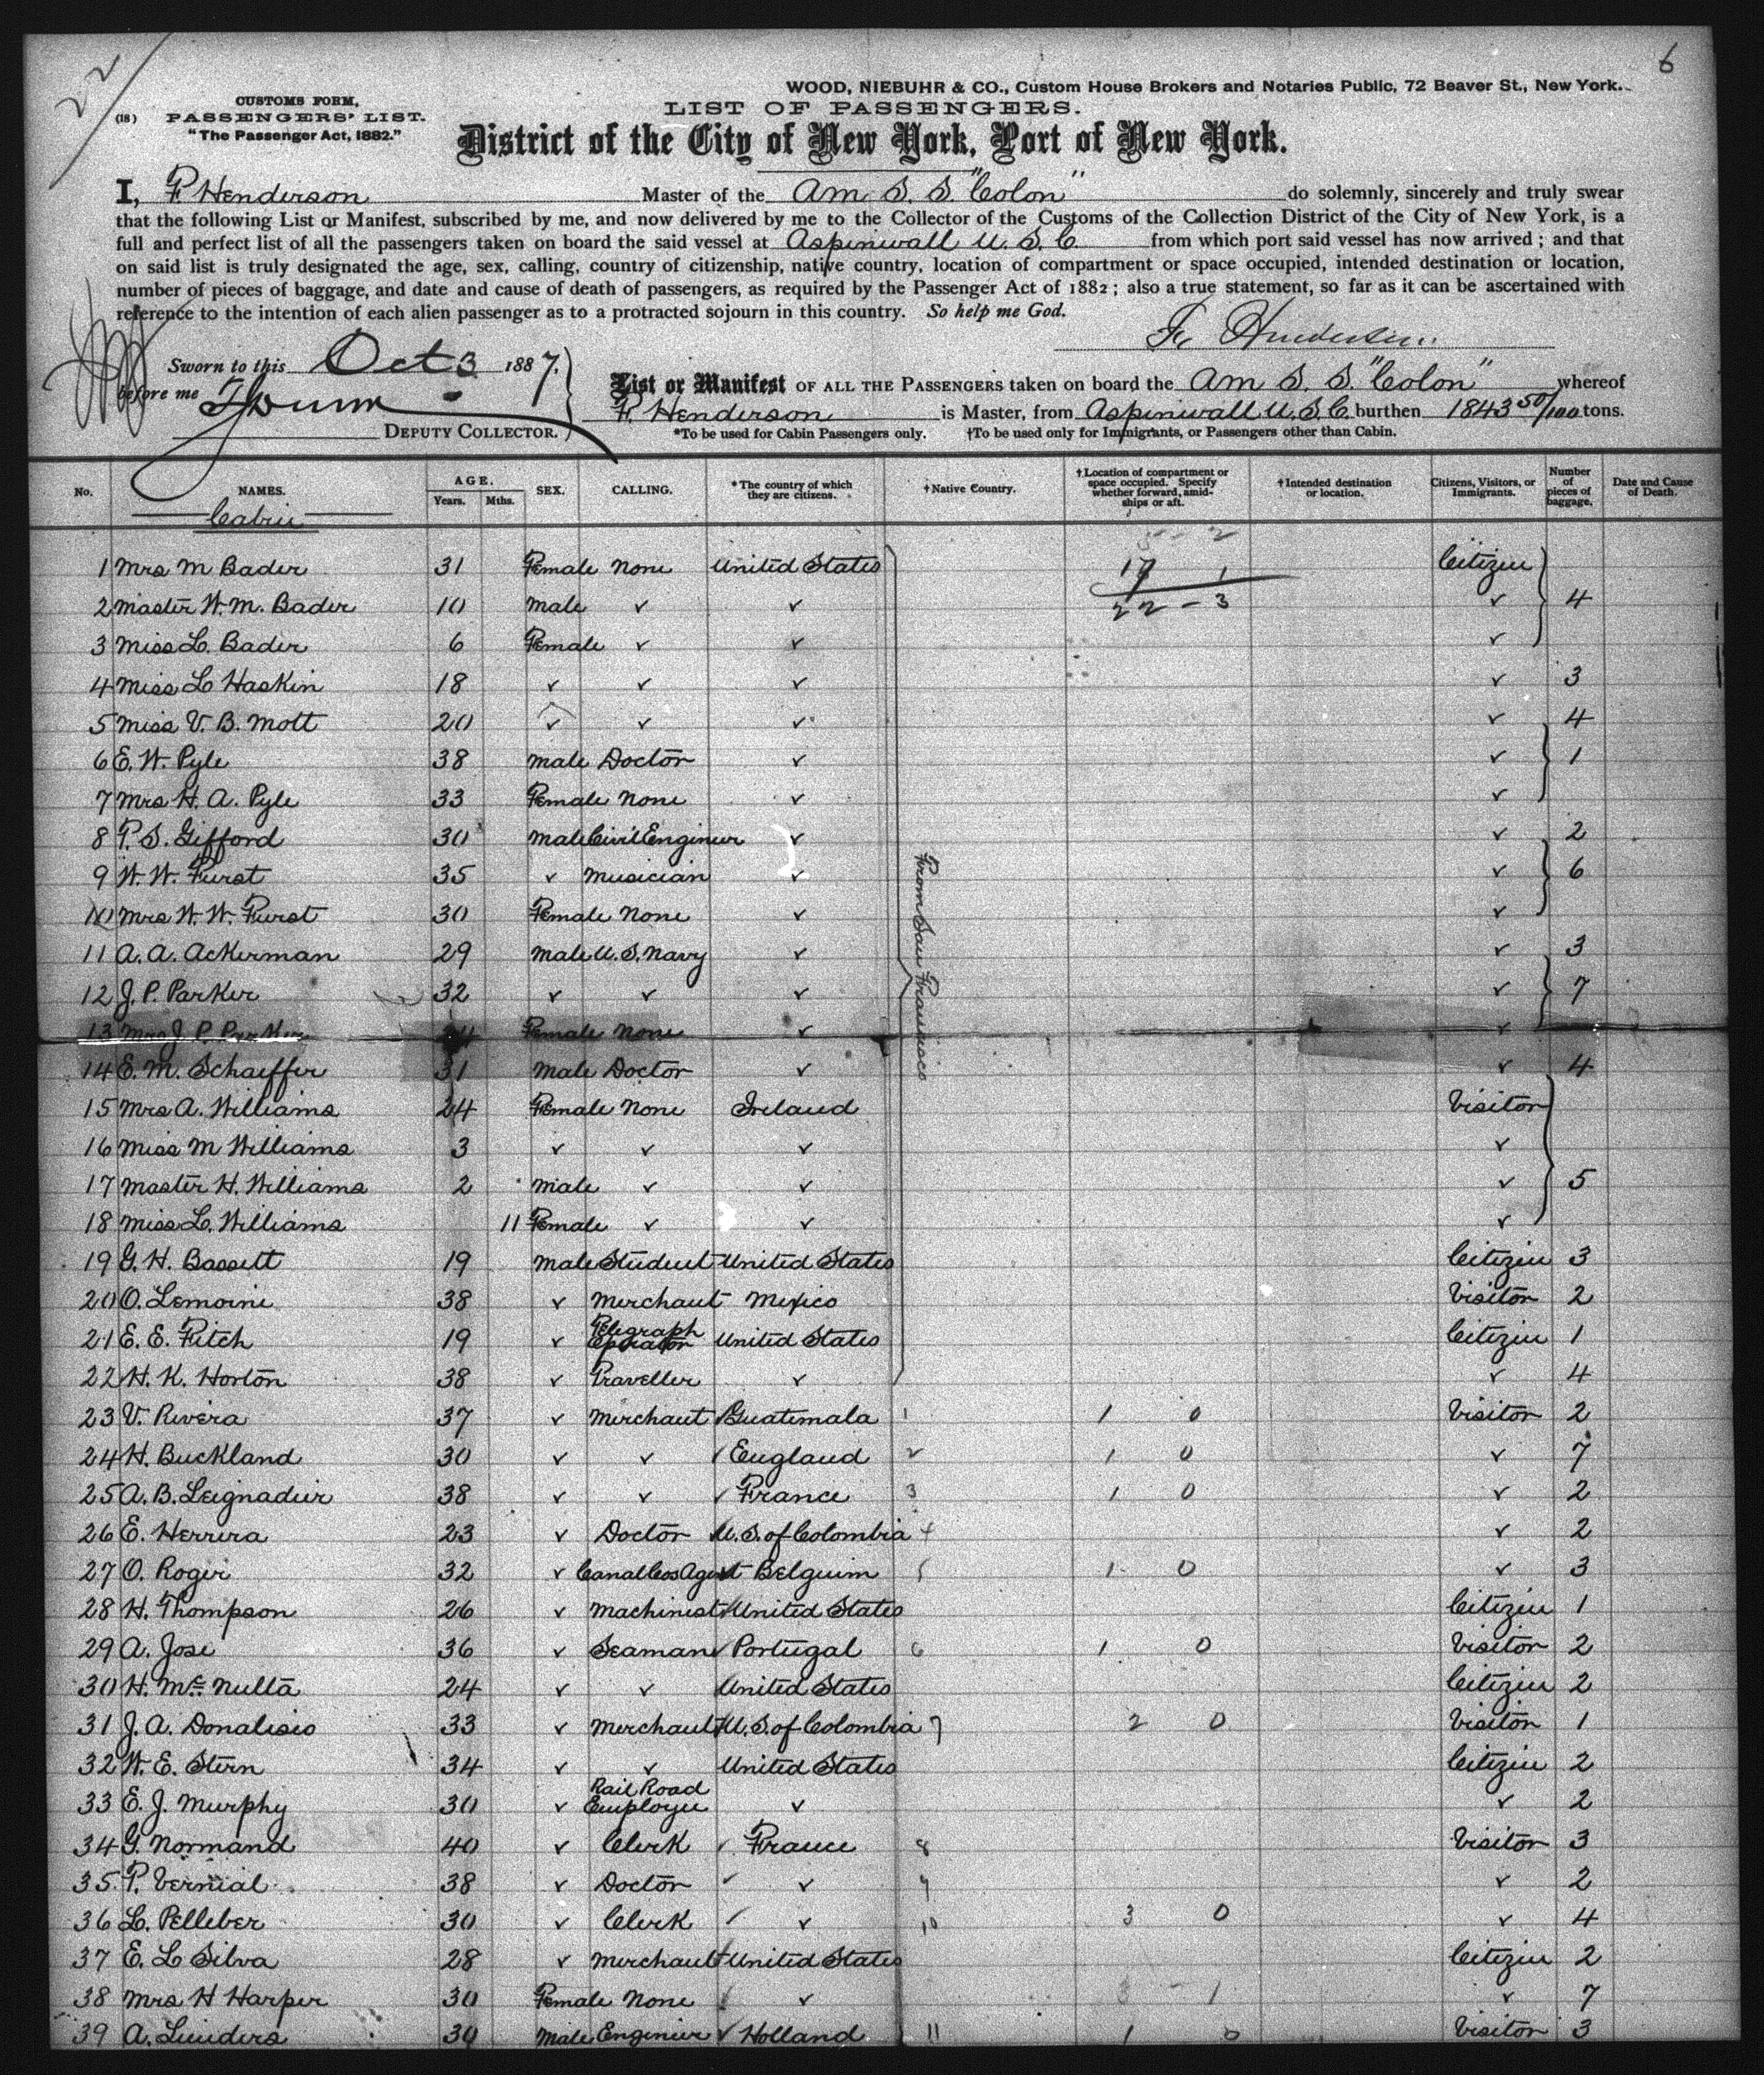 22
6
WOOD, NIEBUHR & CO., Custom House Brokers and Notaries Public, 72 Beaver St., New York.
CUSTOMS FORM,
LIST OF PASSENGERS.
(18) PASSENGERS' LIST.
"The Passenger Act, 1882."
District of the City of New York, Port of New York.
I, F Henderson Master of the Am. S. S. "Colon" do solemnly, sincerely and truly swear
that the following List or Manifest, subscribed by me, and now delivered by me to the Collector of the Customs of the Collection District of the City of New York, is a
full and perfect list of all the passengers taken on board the said vessel at Aspinwall U. S. C from which port said vessel has now arrived ; and that
on said list is truly designated the age, sex, calling, country of citizenship, native country, location of compartment or space occupied, intended destination or location,
number of pieces of baggage, and date and cause of death of passengers, as required by the Passenger Act of 1882 ; also a true statement, so far as it can be ascertained with
reference to the intention of each alien passenger as to a protracted sojourn in this country. So help me God.
Henderson
Sworn to this Oct 3 1887.
before me
DEPUTY COLLECTOR.
List or Manifest OF ALL THE PASSENGERS taken on board the Am S. S. "Colon" whereof
F. Henderson is Master, from Aspinwall U. S. C. burthen 1843 50/100 tons.
*To be used for Cabin Passengers only. †To be used only for Immigrants, or Passengers other than Cabin.
No. NAMES. AGE. Years. Mths. SEX. CALLING. *The country of which they are citizens. †Native Country. †Location of compartment or space occupied. Specify whether forward, amidships or aft. †Intended destination or location. Citizens, Visitors, or Immigrants. Number of pieces of baggage. Date and Cause of Death.
Cabin
1 Mrs M Bader 31 Female None United States Citizen
2 Master W. M. Bader 10 Male ✓ ✓ 22 - 3 ✓ 4
3 Miss L. Bader 6 Female ✓ ✓ ✓
4 Miss L Haskin 18 ✓ ✓ ✓ ✓ 3
5 Miss V. B. Mott 20 ✓ ✓ ✓ ✓ 4
6 E. W. Pyle 38 Male Doctor ✓ ✓ 1
7 Mrs H. A. Pyle 33 Female None ✓ ✓
8 P. S. Gifford 30 Male Civil Engineer ✓ ✓ 2
9 W. W. Furst 35 ✓ Musician ✓ ✓ 6
10 Mrs W. W. Furst 30 Female None ✓ ✓
From San Francisco
11 A. A. Ackerman 29 Male U. S. Navy ✓ ✓ 3
12 J. P. Parker 32 ✓ ✓ ✓ ✓ 7
13 Mrs J. P. Parker Female None ✓ ✓
14 E. M. Schaeffer 31 Male Doctor ✓ ✓ 4
15 Mrs A. Williams 24 Female None Ireland Visitor
16 Miss M Williams 3 ✓ ✓ ✓ ✓
17 Master H. Williams 2 Male ✓ ✓ ✓ 5
18 Miss L. Williams 11 Female ✓ ✓ ✓
19 G. H. Bassett 19 Male Student United States Citizen 3
20 O. Lemoine 38 ✓ Merchant Mexico Visitor 2
21 E. E. Fitch 19 ✓ Telegraph Operator United States Citizen 1
22 H. K. Horton 38 ✓ Traveller ✓ ✓ 4
23 V. Rivera 37 ✓ Merchant Guatemala 1 1 0 Visitor 2
24 H. Buckland 30 ✓ ✓ England 2 1 0 ✓ 7
25 A. B. Leignadier 38 ✓ ✓ France 3 1 0 ✓ 2
26 E. Herrera 23 ✓ Doctor U. S. of Colombia 4 ✓ 2
27 O. Roger 32 ✓ Canal Cos Agent Belguim 5 1 0 ✓ 3
28 H. Thompson 26 ✓ Machinest United States Citizen 1
29 A. Jose 36 ✓ Seaman Portugal 6 1 0 Visitor 2
30 H. Mc Nulta 24 ✓ ✓ United States Citizen 2
31 J. A. Donalisio 33 ✓ Merchant U. S. of Colombia 7 2 0 Visitor 1
32 W. E. Stern 34 ✓ ✓ United States Citizen 2
33 E. J. Murphy 30 ✓ Rail Road Employee ✓ ✓ 2
34 G. Normand 40 ✓ Clerk France 8 Visitor 3
35 P. Vernial 38 ✓ Doctor ✓ 9 ✓ 2
36 L. Pelleber 30 ✓ Clerk ✓ 10 3 0 ✓ 4
37 E. L Silva 28 ✓ Merchant United States Citizen 2
38 Mrs H Harper 30 Female None ✓ 3 - 1 ✓ 7
39 A. Luinders 30 Male Engineer Holland 11 1 0 Visitor 3